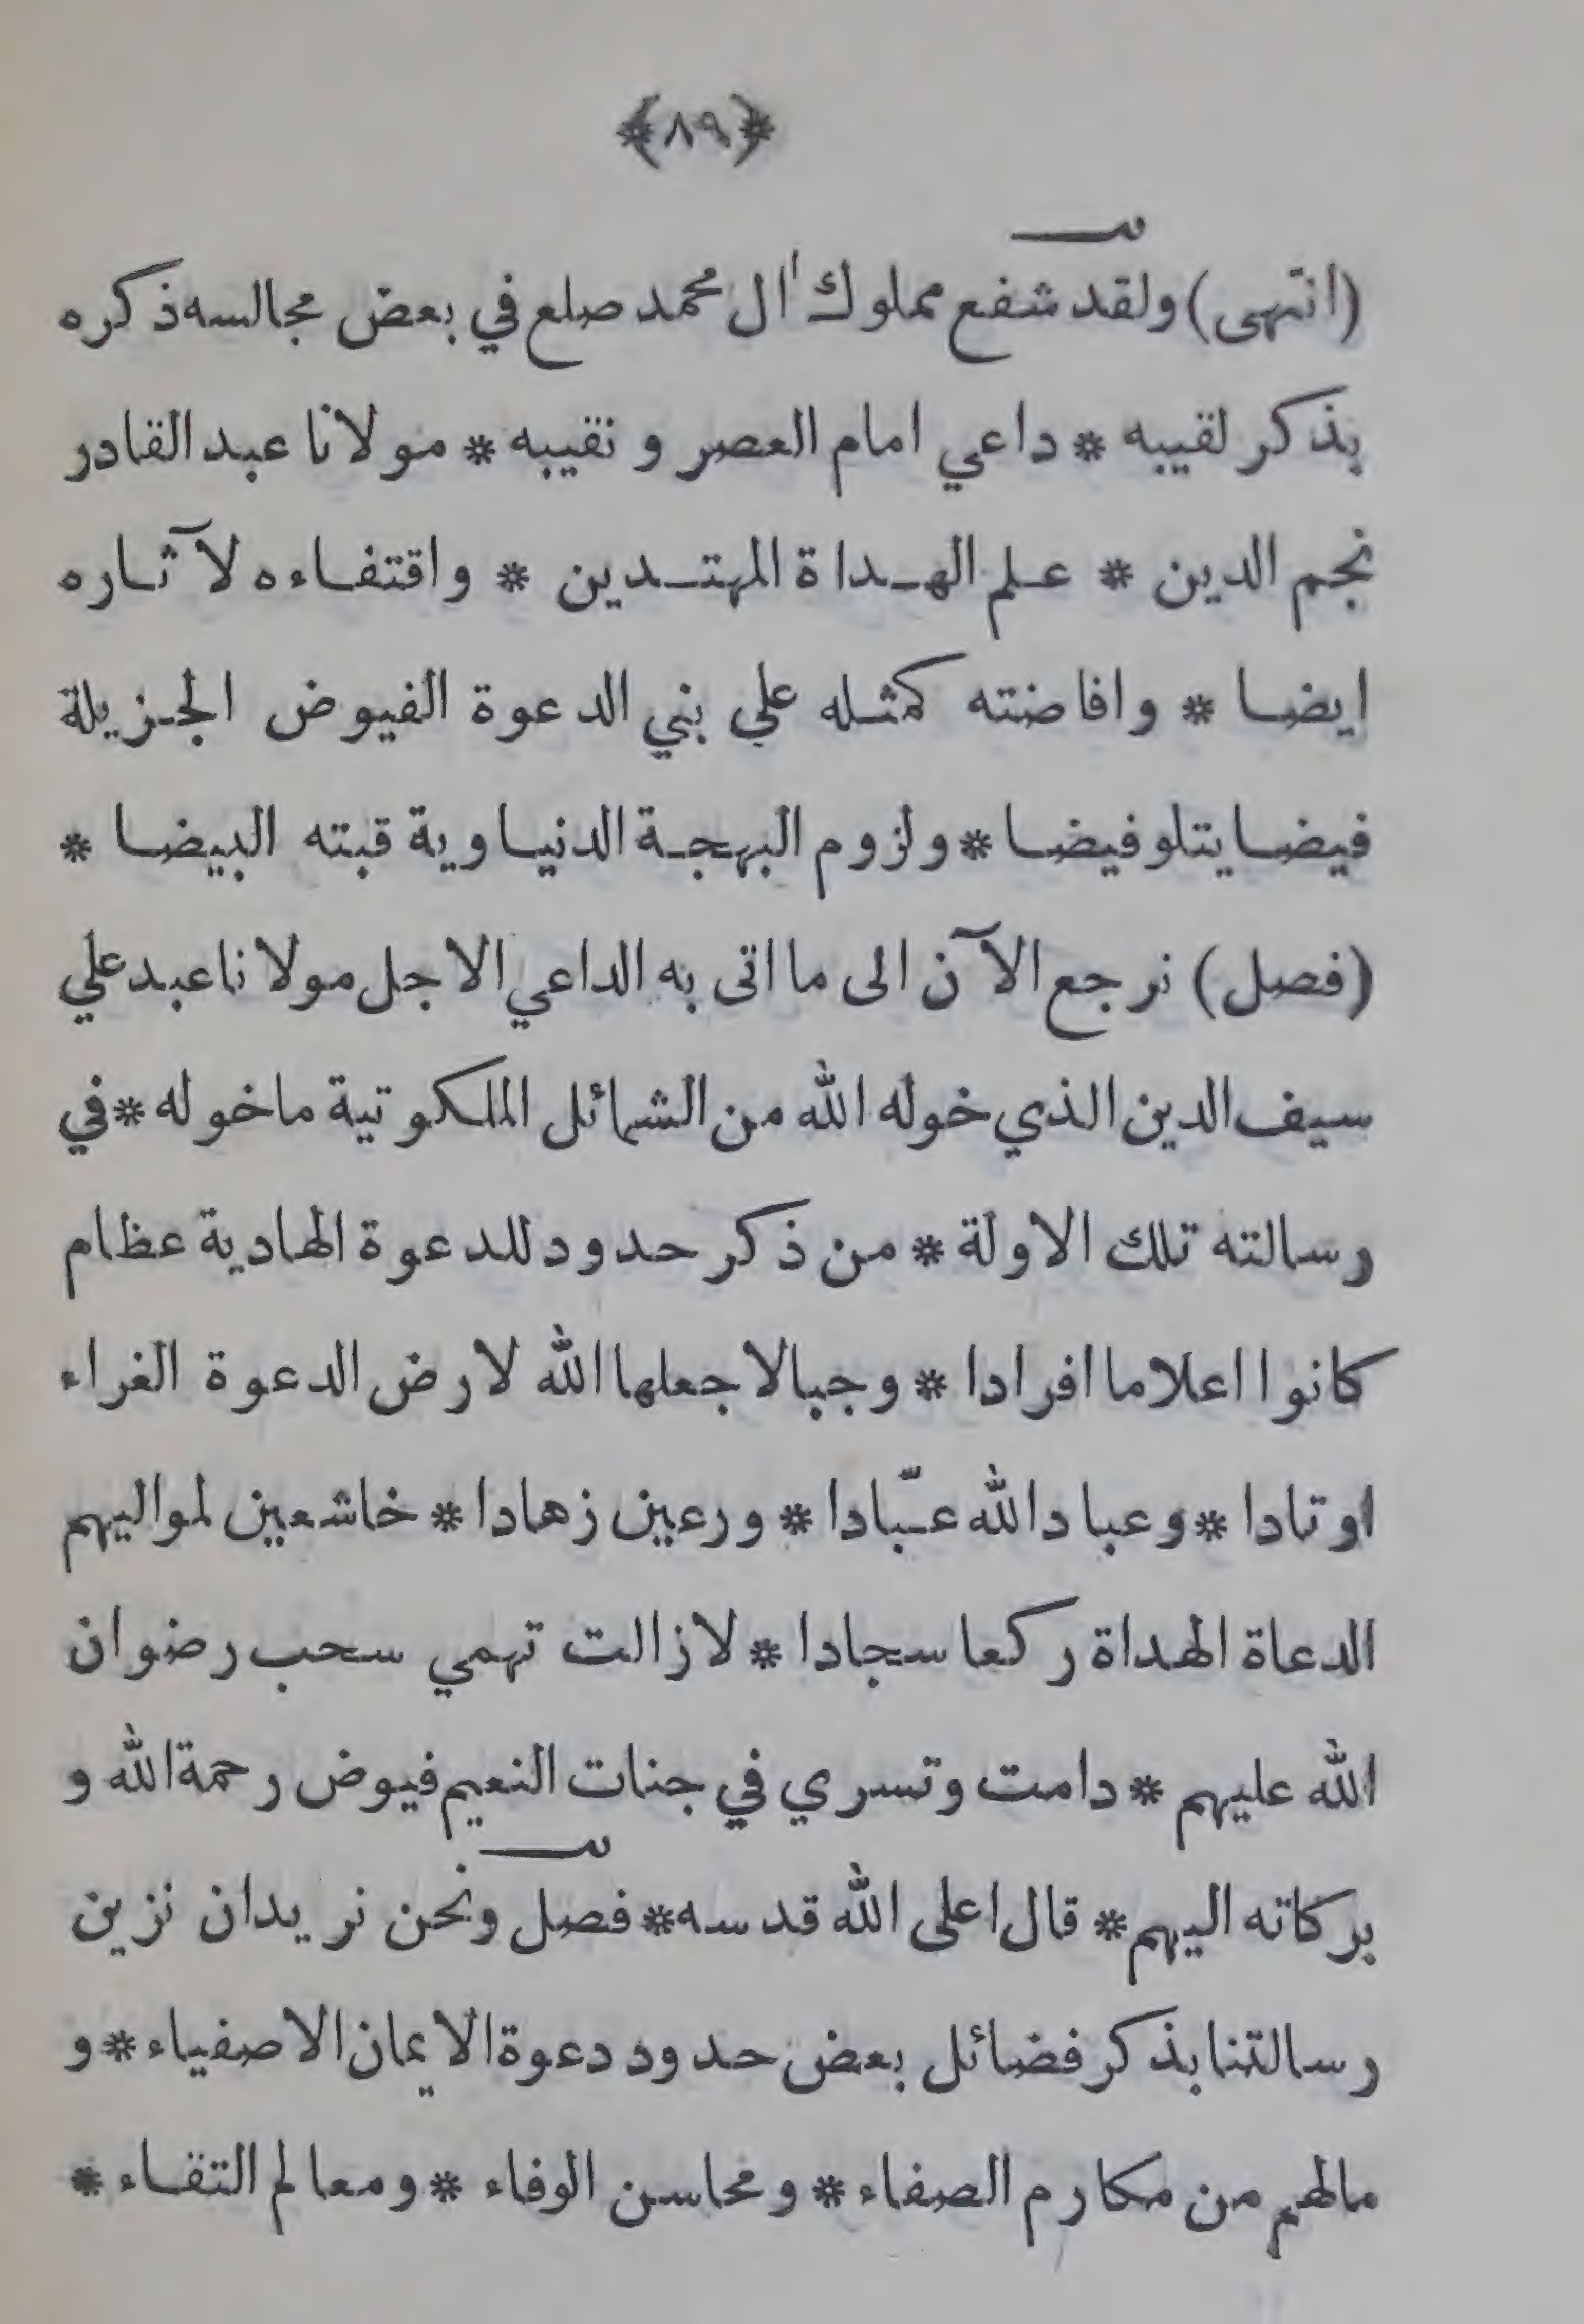 ﴿٨٩﴾
(انتهى) ولقد شفع مملوك اٰل محمد صلع في بعض مجالسه ذكره
بذكر لقيبه * داعي امام العصر و نقيبه * مولانا عبد القادر
نجم الدين * علم الهداة المهتدين * واقتفاءه لآثاره
ايضا * وافاضته كمثله علي بني الدعوة الفيوض الجزيلة
فيضا يتلو فيضا * ولزوم البهجة الدنياوية قبته البيضا *
(فصل) نرجع الآن الى ما اتى به الداعي الاجل مولانا عبد علي
سيف الدين الذي خوله الله من الشمائل الملكوتية ما خوله * في
رسالته تلك الاولة * من ذكر حدود للدعوة الهادية عظام
كانوا اعلاما افرادا * وجبالا جعلها الله لارض الدعوة الغراء
اوتادا * وعباد الله عبّادا * ورعين زهادا * خاشعين لمواليهم
الدعاة الهداة ركعا سجادا * لازالت تهمي سحب رضوان
الله عليهم * دامت وتسري في جنات النعيم فيوض رحمة الله و
بركاته اليهم * قال اعلى الله قدسه * فصل ونحن نريد ان نزين
رسالتنا بذكر فضائل بعض حدود دعوة الايمان الاصفياء * و
مالهم من مكارم الصفاء * ومحاسن الوفاء * ومعالم التقاء *